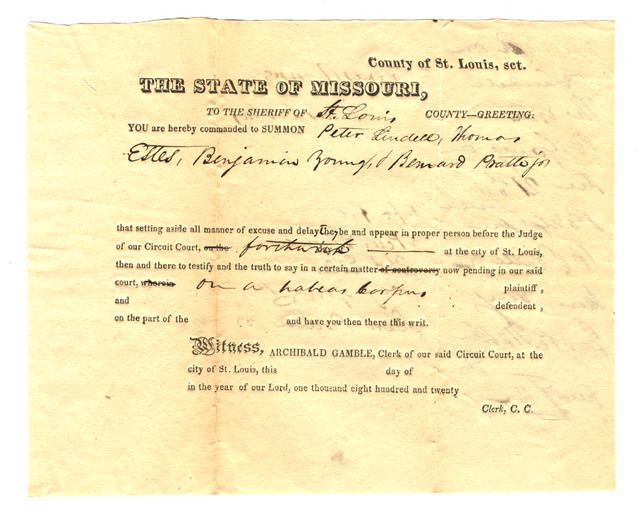 County of St. Louis, sct.
THE STATE OF MISSOURI,
TO THE SHERIFF OF St. Louis COUNTY—GREETING:
YOU are hereby commanded to SUMMON Peter Lindell, Thomas
Estes, Benjamin Young, & Bernard Pratte jr
that setting aside all manner of excuse and delay they be and appear in proper person before the Judge
of our Circuit Court, on the forthwith at the city of St. Louis,
then and there to testify and the truth to say in a certain matter of controversy now pending in our said
court, wherein on a habeas Corpus plaintiff,
and defendent,
on the part of the and have you then there this writ.
Witness, ARCHIBALD GAMBLE, Clerk of our said Circuit Court, at the
city of St. Louis, this day of
in the year of our Lord, one thousand eight hundred and twenty
Clerk, C. C.